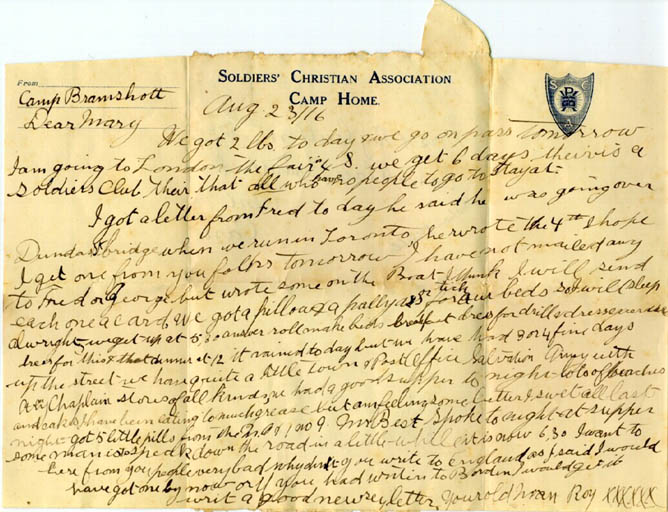 SOLDIERS' CHRISTIAN ASSOCIATION
CAMP HOME.
From
Camp Bramshott
Aug 23/16
Dear Mary
We got 2 lbs. to day & we go on pass tomorrow
I am going to London the fair is $ we get 6 days their is a
soldiers Club their that all who have no people to go to stay at
I got a letter from Fred to day he said he was going over
Dundas bridge when we run in Toronto he wrote the 4th I hope
I get one from you folks tomorrow I have not mailed any
to Fred or George but wrote some on the Boat I think I will send
each one a card We got a pillow & a pallyass tick for our beds so will sleep
alright we get up at 5,30 answer roll make beds breakfast dress for drill
for this & that dinner at 12 it rained to day but we have had 3 or 4 fine days
up the street we have quite a little town a Post Office Salvation Army with
Chaplain stores of all kinds we had a good supper to night lots of peaches
and cakes I have been eating to much grease but am feeling some better I swit all last
night got 5 little pills from the M.O. no 9. Mr Best spoke to night at supper
some man is to speak down the road in a little while it is now 6,30 I want to
here from you people very bad why didn't you write to England as I said I would
have got one by now or if you had writen to Borden I would get it
writ a good newsey letter Your old man Roy XXXXXX